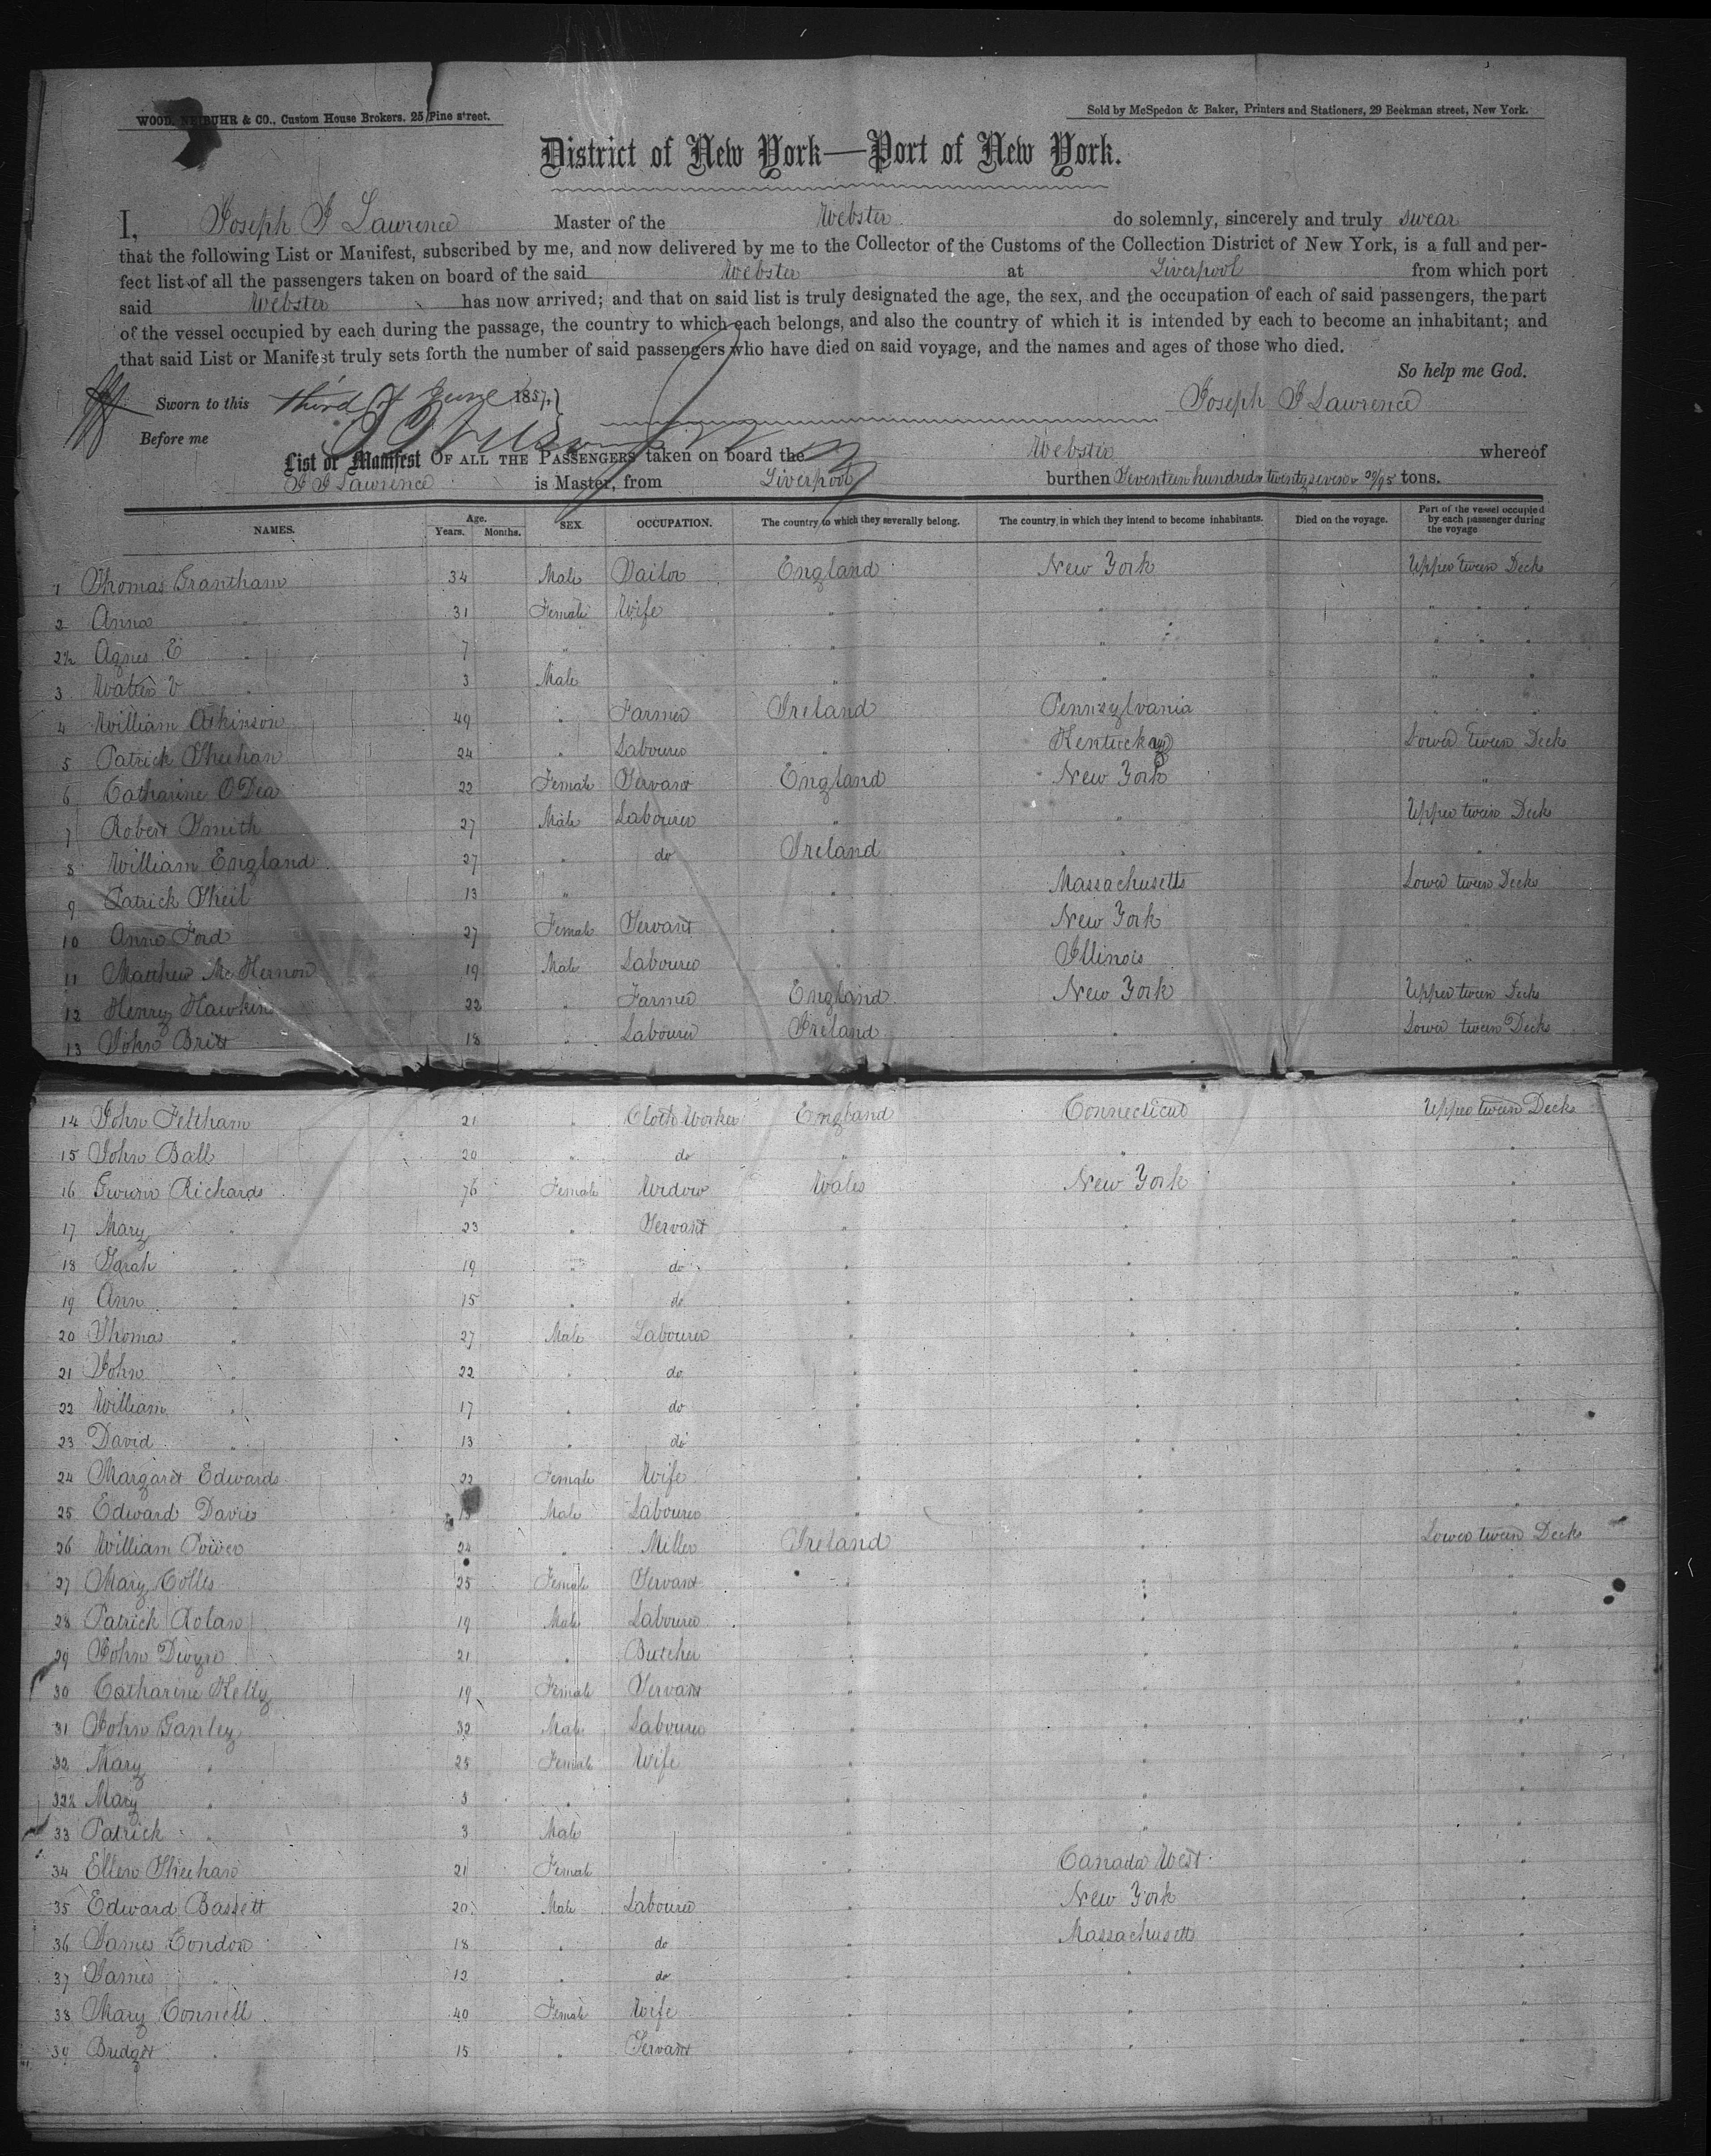 WOOD, NEIBUHR & CO., Custom House Brokers. 25 Pine street.
Sold by McSpedon & Baker, Printers and Stationers, 29 Beekman street, New York.
District of New York—Port of New York.
I, Joseph J Lawrence Master of the Webster do solemnly, sincerely and truly swear
that the following List or Manifest, subscribed by me, and now delivered by me to the Collector of the Customs of the Collection District of New York, is a full and per-
fect list of all the passengers taken on board of the said Webster at Liverpool from which port
said Webster has now arrived; and that on said list is truly designated the age, the sex, and the occupation of each of said passengers, the part
of the vessel occupied by each during the passage, the country to which each belongs, and also the country of which it is intended by each to become an inhabitant; and
that said List or Manifest truly sets forth the number of said passengers who have died on said voyage, and the names and ages of those who died.
So help me God.
Sworn to this third of June 1857, Joseph J Lawrence
Before me
List or Manifest OF ALL THE PASSENGERS taken on board the Webster whereof
J J Lawrence is Master, from Liverpool burthen Seventeen hundred & twenty seven & 30/95 tons.
NAMES. Age. Years. Months. SEX. OCCUPATION. The country to which they severally belong. The country in which they intend to become inhabitants. Died on the voyage. Part of the vessel occupied by each passenger during the voyage
1 Thomas Grantham 34 Male Sailor England New York Upper tween Decks
2 Anna " 31 Female Wife " " " " "
2½ Agnes E " 7 " " " " " "
3 Walter V " 3 Male " " " "
4 William Atkinson 49 " Farmer Ireland Pennsylvania " " "
5 Patrick Sheehan 24 " Labourer " Kentucky Lower tween Decks
6 Catharine O'Dea 22 Female Servant England New York "
7 Robert Smith 27 Male Labourer " " Upper tween Decks
8 William England 27 " do Ireland " "
9 Patrick Sheil 13 " " Massachusetts Lower tween Decks
10 Anne Ford 27 Female Servant " New York "
11 Matthew McKernon 19 Male Labourer " Illinois "
12 Henry Hawkins 22 " Farmer England New York Upper tween Decks
13 John Britt 18 " Labourer Ireland " Lower tween Decks
14 John Feltham 21 " Cloth Worker England Connecticut Upper tween Decks
15 John Ball 20 " do " " "
16 Richards 76 Female Widow Wales New York "
17 Mary " 23 " Servant " " "
18 Sarah " 19 " do " " "
19 Ann " 15 " do " " "
20 Thomas " 27 Male Labourer " " "
21 John " 22 " do " " "
22 William " 17 " do " " "
23 David " 13 " do " " "
24 Margaret Edwards 22 Female Wife " " "
25 Edward Davis Male Labourer " " "
26 William Power 24 " Miller Ireland " Lower tween Decks
27 Mary Colles 25 Female Servant " " "
28 Patrick 19 Male Labourer " " "
29 John Dwyer 21 " Butcher " " "
30 Catharine Kelly 19 Female Servant " " "
31 John Ganley 32 Male Labourer " " "
32 Mary " 25 Female Wife " " "
32½ Mary " 3 " " " "
33 Patrick " 3 Male " " "
34 Ellen Sheehan 21 Female " Canada West "
35 Edward Bassett 20 Male Labourer " New York "
36 James Condon 18 " do " Massachusetts "
37 James " 12 " do " " "
38 Mary Connell 40 Female Wife " " "
39 Bridget " 15 " Servant " " "